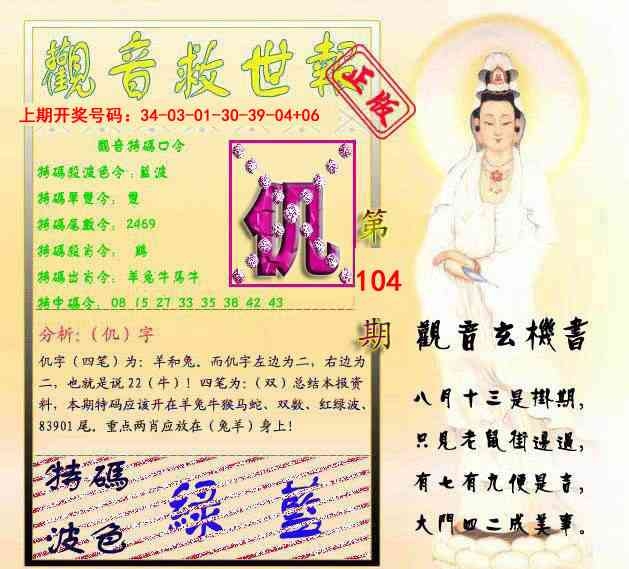 觀音救世報
正版
上期开奖号码：34-03-01-30-39-04+06
觀音特碼口令
特碼殺波色令：藍波
特碼單雙令： 雙
特碼尾數令： 2469
特碼殺肖令： 鷄
特碼出肖令： 羊兔牛馬牛
特中碼令： 08 15 27 33 35 38 42 43
仉
第
104
期
分析：（仉）字
仉字（四笔）为：羊和兔。而仉字左边为二，右边为
二，也就是说 22（牛）！四笔为：（双）总结本报资
料，本期特码应该开在羊兔牛猴马蛇、双数、红绿波、
83901 尾。重点两肖应放在（兔羊）身上！
特碼
波色
綠 藍
觀音玄機書
八月十三是掛期，
只見老鼠街邊過，
有七有九便是吉，
大門四二成美事。